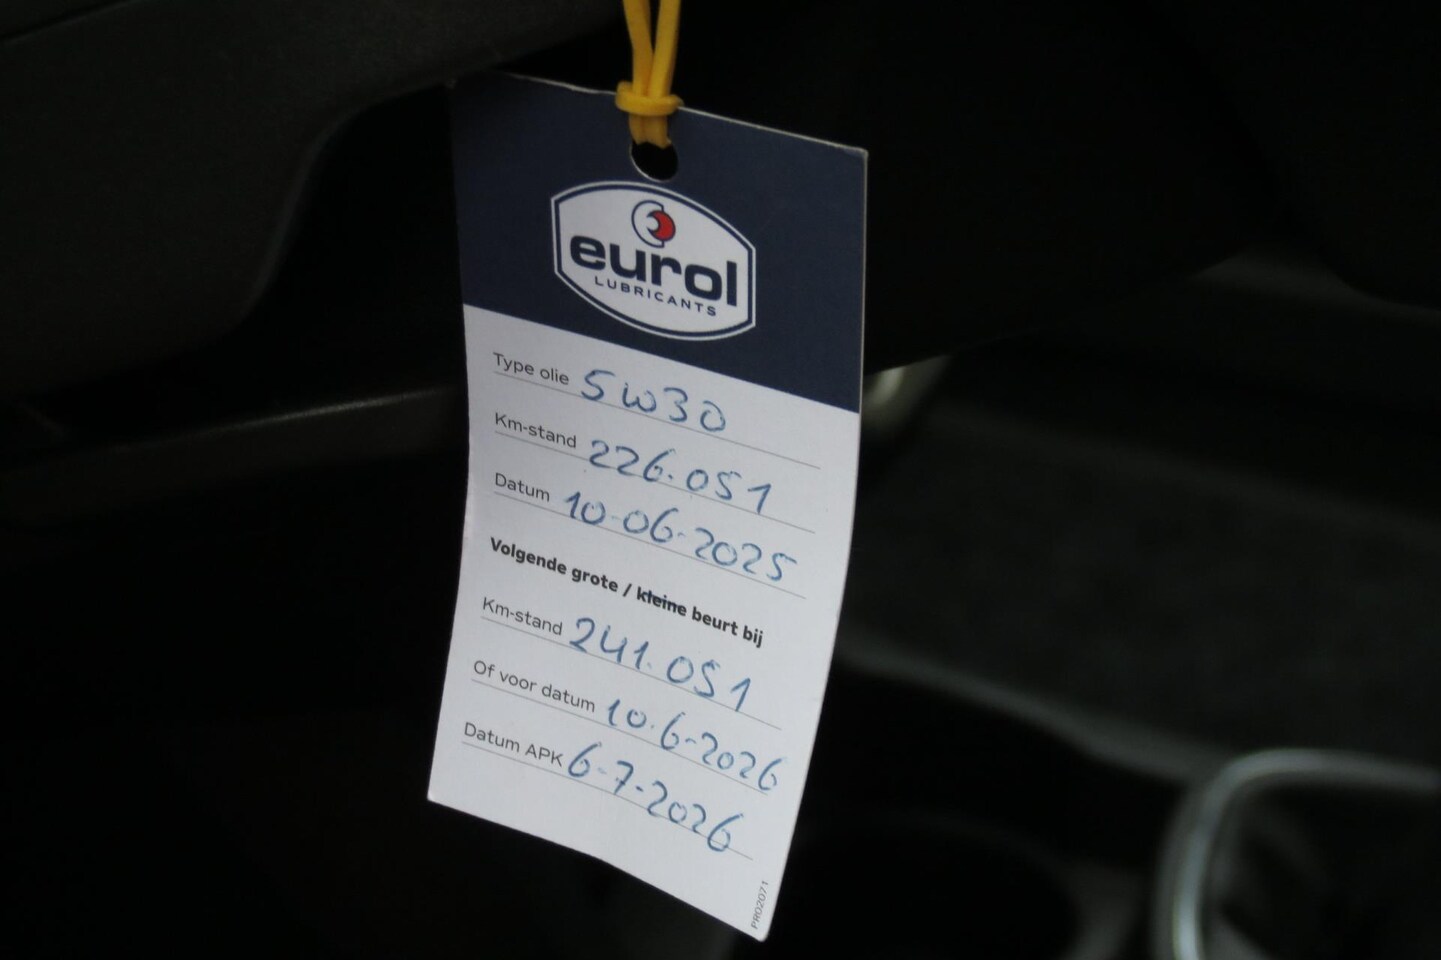 eurol
LUBRICANTS
Type olie 5W30
Km-stand 226.051
Datum 10-06-2025
Volgende grote / kleine beurt bij
Km-stand 241.051
Of voor datum 10.6-2026
Datum APK 6-7-2026
PR02071